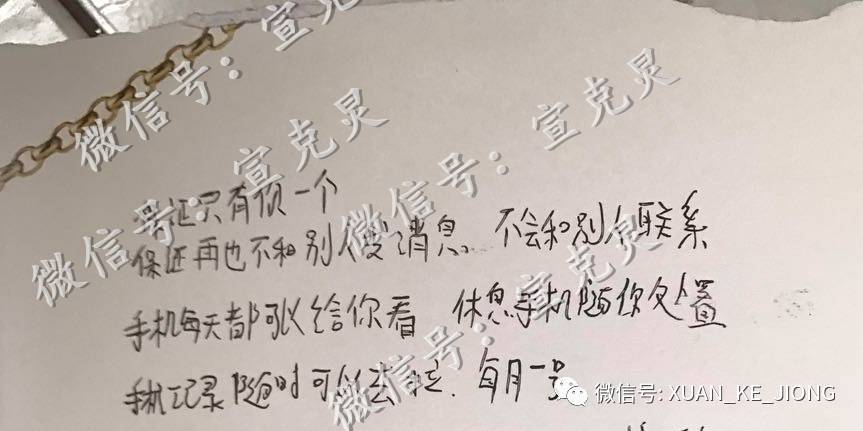 保证只有你一个
保证再也不和别人发消息 不会和别人联系
手机每天都可以给你看 休息手机随你处置
手机记录随时可以去拉. 每月一号
微信号：宣克灵
微信号：宣克灵
微信号：宣克灵
微信号：宣克灵
微信号: XUAN_KE_JIONG